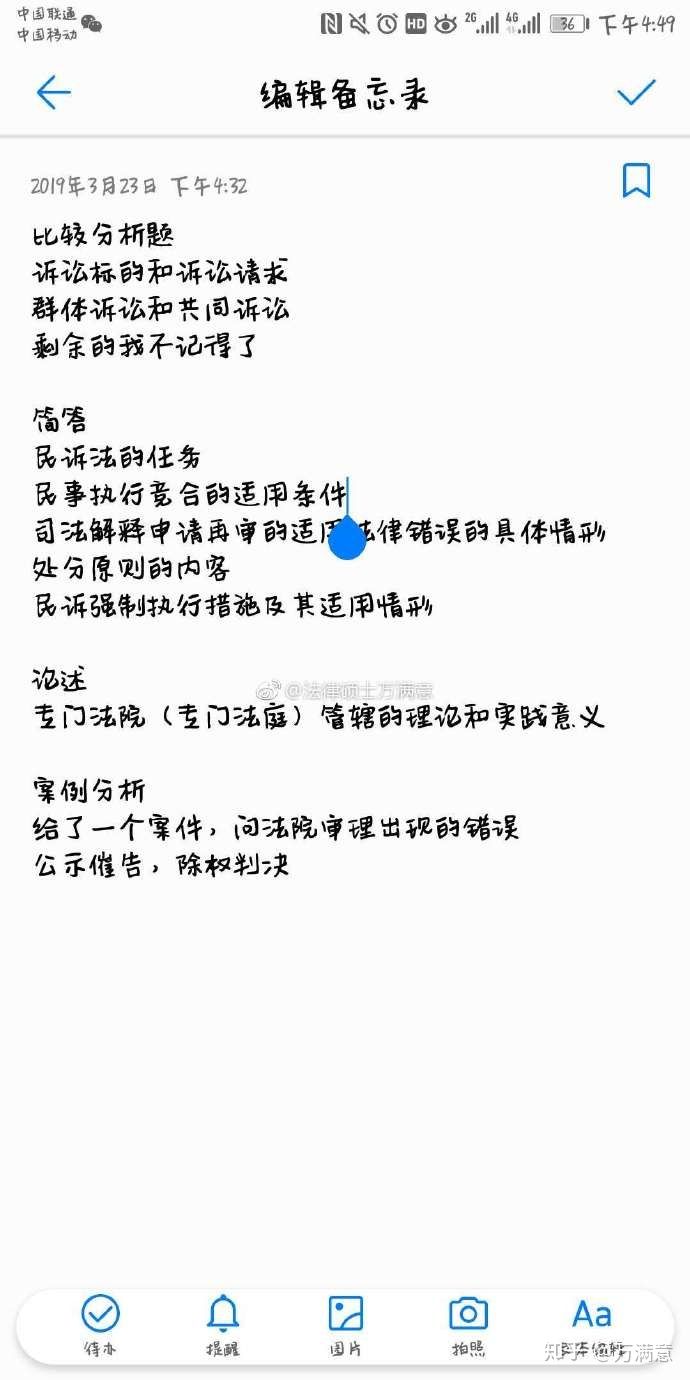 中国联通
中国移动
HD 2G 4G 36 下午4:49
编辑备忘录
2019年3月23日 下午4:32
比较分析题
诉讼标的和诉讼请求
群体诉讼和共同诉讼
剩余的我不记得了
简答
民诉法的任务
民事执行竞合的适用条件
司法解释申请再审的适用法律错误的具体情形
处分原则的内容
民诉强制执行措施及其适用情形
论述
@法律硕士万满意
专门法院（专门法庭）管辖的理论和实践意义
案例分析
给了一个案件，问法院审理出现的错误
公示催告，除权判决
Aa
待办 提醒 图片 拍照
知乎 @万满意